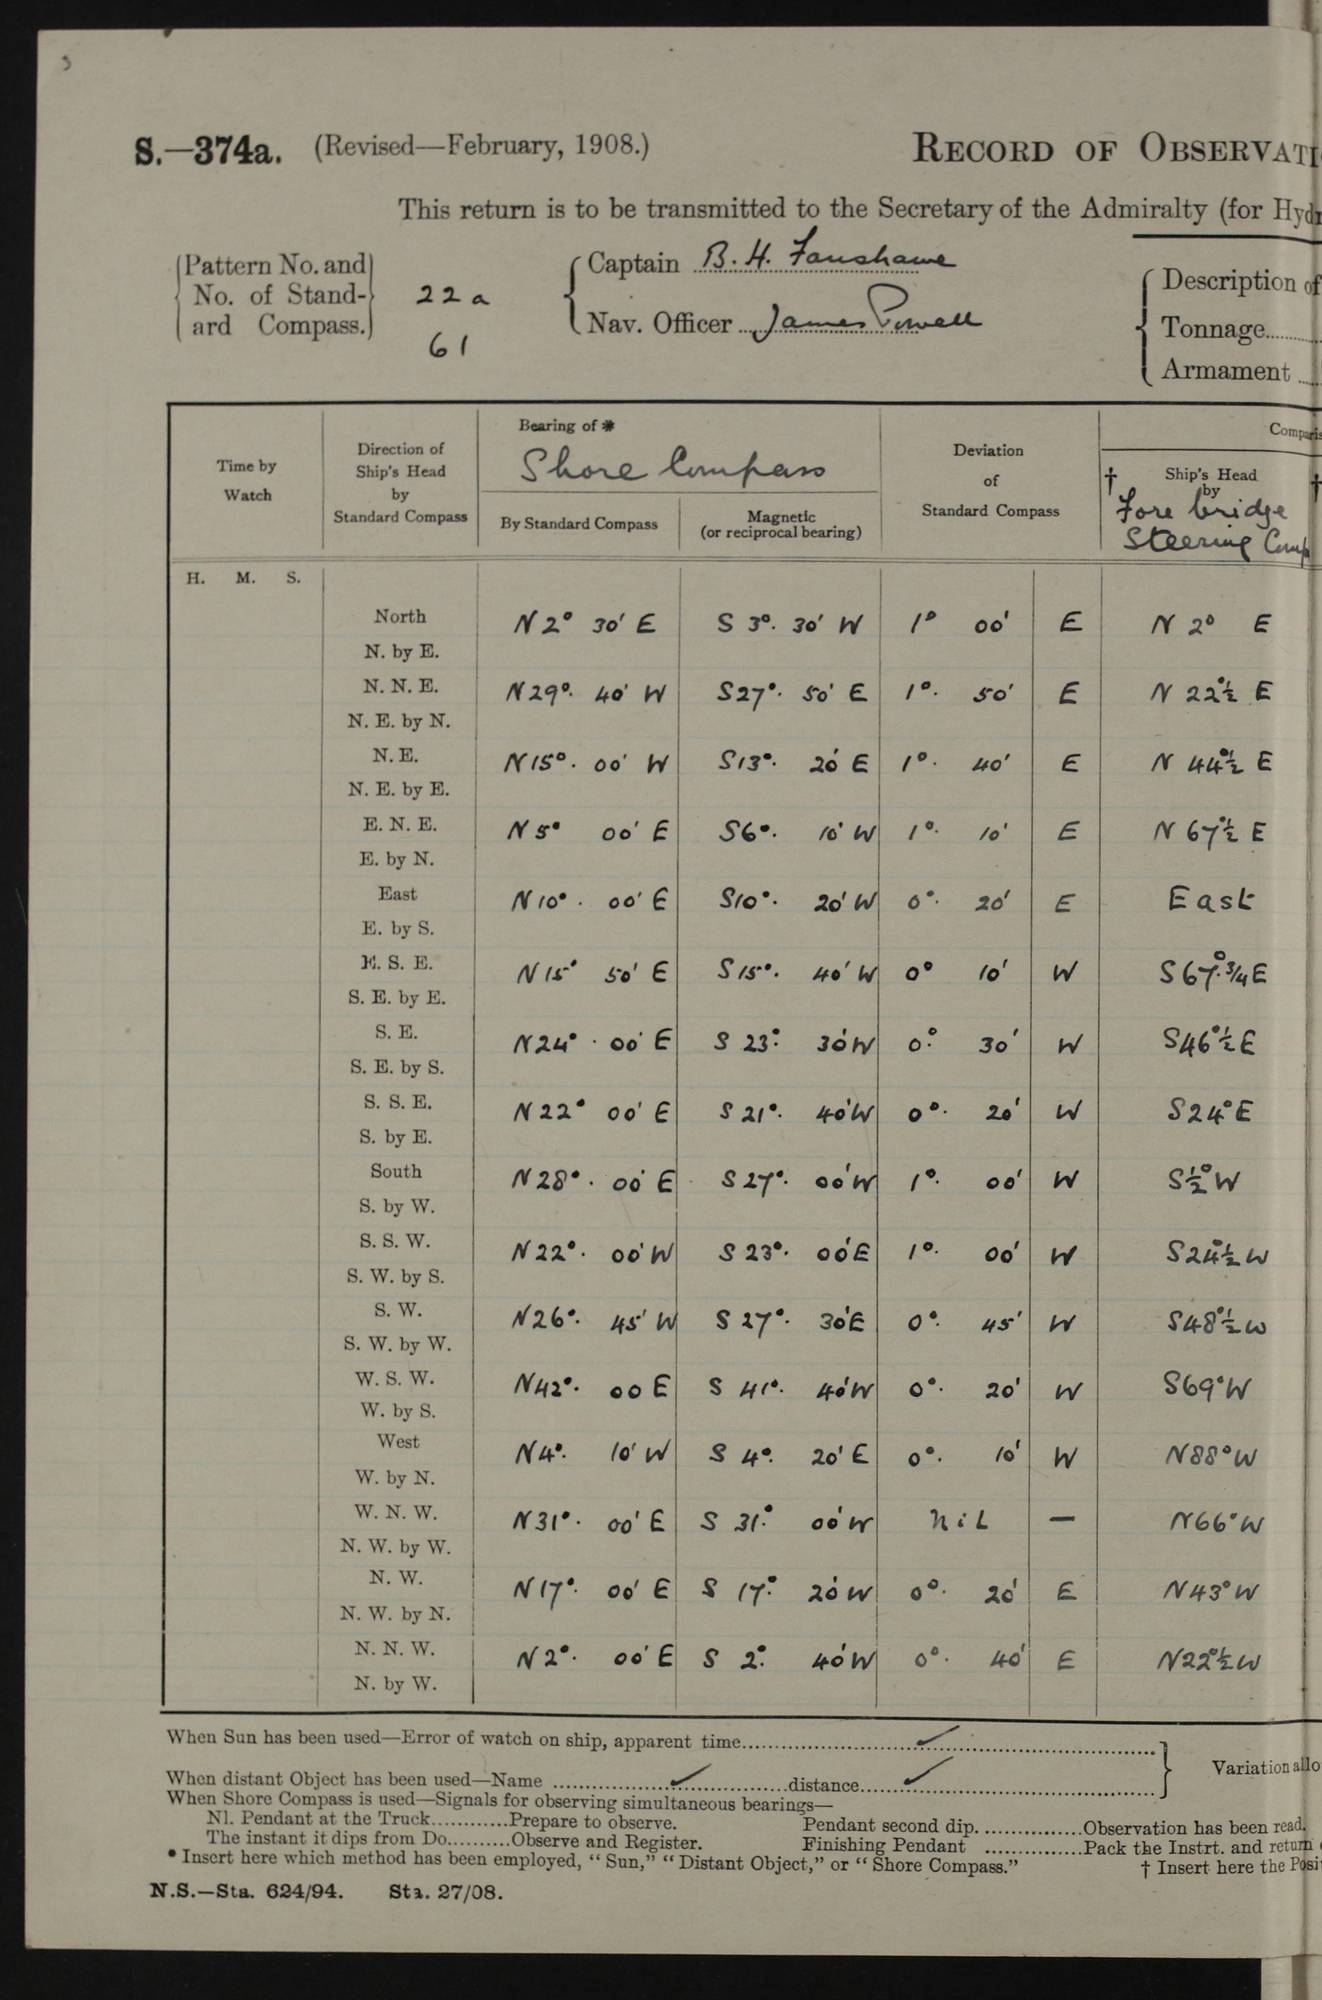 S.—374a. (Revised—February, 1908.) RECORD OF OBSERVATI
This return is to be transmitted to the Secretary of the Admiralty (for Hydr
Pattern No. and No. of Standard Compass. 22a 61
Captain B. H. Fanshawe
Nav. Officer James Powell
Description of
Tonnage
Armament
Time by Watch
Direction of Ship's Head by Standard Compass
Bearing of * Shore Compass
By Standard Compass
Magnetic (or reciprocal bearing)
Deviation of Standard Compass
Comparis
† Ship's Head by Fore bridge Steering Comp †
H. M. S.
North N 2° 30' E S 3°. 30' W 1° 00' E N 2° E
N. by E.
N. N. E. N 29°. 40' W S 27°. 50' E 1°. 50' E N 22°½ E
N. E. by N.
N. E. N 15°. 00' W S 13°. 20' E 1°. 40' E N 44°½ E
N. E. by E.
E. N. E. N 5° 00' E S 6°. 10' W 1°. 10' E N 67°½ E
E. by N.
East N 10°. 00' E S 10°. 20' W 0°. 20' E East
E. by S.
E. S. E. N 15° 50' E S 15°. 40' W 0° 10' W S 67°.¾ E
S. E. by E.
S. E. N 24°. 00' E S 23°. 30' W 0°. 30' W S 46°½ E
S. E. by S.
S. S. E. N 22° 00' E S 21°. 40' W 0°. 20' W S 24° E
S. by E.
South N 28°. 00' E S 27°. 00' W 1°. 00' W S ½° W
S. by W.
S. S. W. N 22°. 00' W S 23°. 00' E 1°. 00' W S 24°½ W
S. W. by S.
S. W. N 26°. 45' W S 27°. 30' E 0°. 45' W S 48°½ W
S. W. by W.
W. S. W. N 42°. 00 E S 41°. 40' W 0°. 20' W S 69° W
W. by S.
West N 4°. 10' W S 4°. 20' E 0°. 10' W N 88° W
W. by N.
W. N. W. N 31°. 00' E S 31°. 00' W nil — N 66° W
N. W. by W.
N. W. N 17°. 00' E S 17°. 20' W 0°. 20' E N 43° W
N. W. by N.
N. N. W. N 2°. 00' E S 2°. 40' W 0°. 40' E N 22°½ W
N. by W.
When Sun has been used—Error of watch on ship, apparent time ✓
When distant Object has been used—Name ✓ distance ✓ Variation allo
When Shore Compass is used—Signals for observing simultaneous bearings—
Nl. Pendant at the Truck............Prepare to observe. Pendant second dip. ...............Observation has been read.
The instant it dips from Do..........Observe and Register. Finishing Pendant ...............Pack the Instrt. and return
* Insert here which method has been employed, “Sun,” “Distant Object,” or “Shore Compass.” † Insert here the Posi
N.S.—Sta. 624/94. Sta. 27/08.